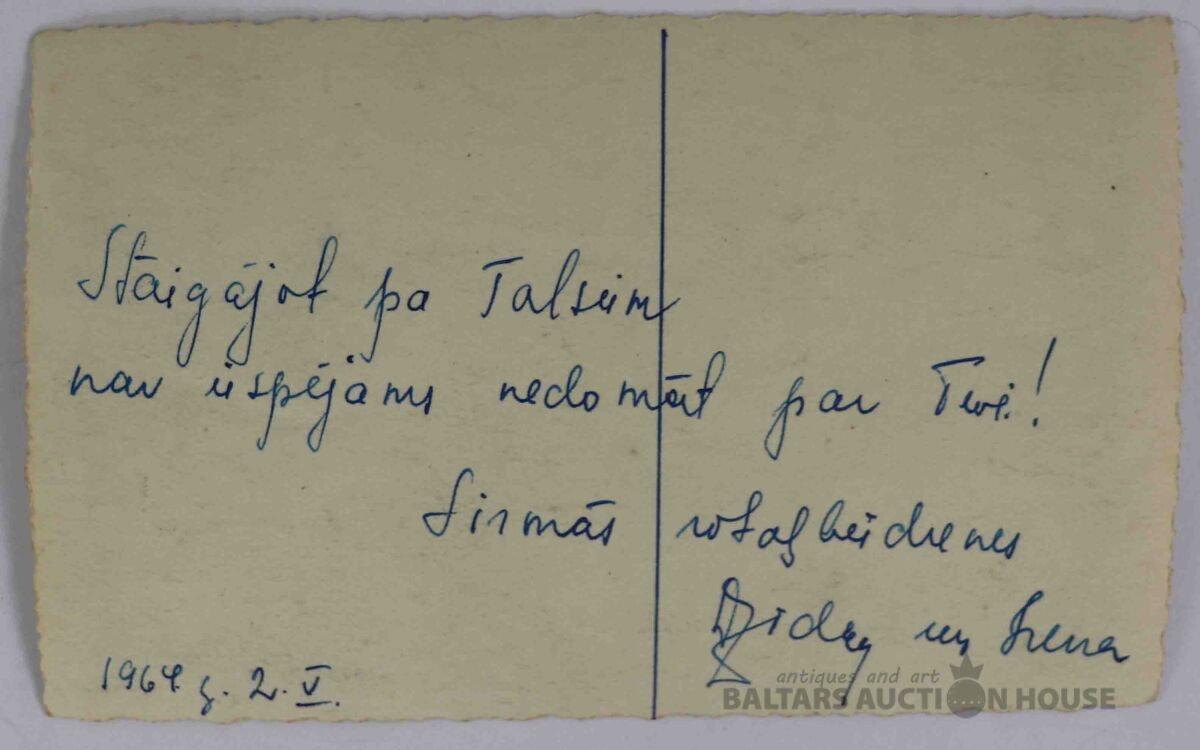 Staigājot pa Talsiem
nav iespējams nedomāt par Tevi!
Sirmās rotaļbiedrenes
Dzidra un Irena
1964. g. 2. V.
antiques and art
BALTARS AUCTION HOUSE